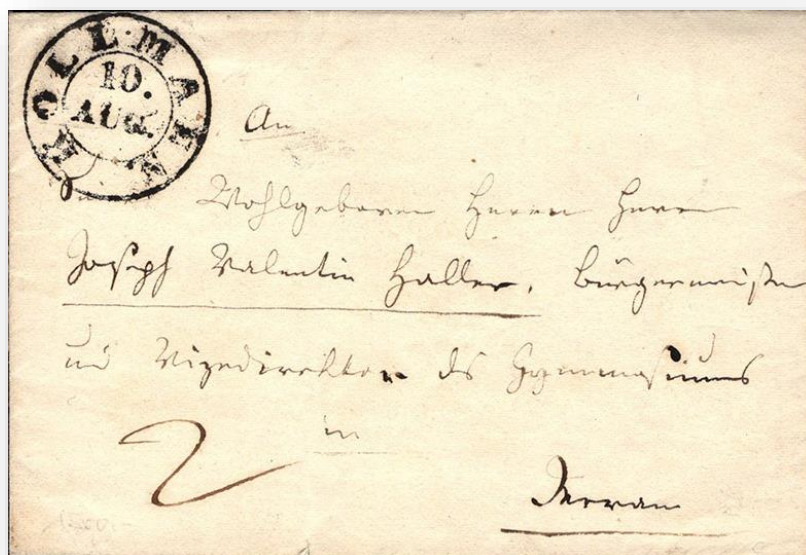 KOLLMANN
10.
AUG.
An
Wohlgeboren Herrn Herrn
Joseph Valentin Haller, Bürgermeister
und Vizedirektor des Gymnasiums
2
in
Merran